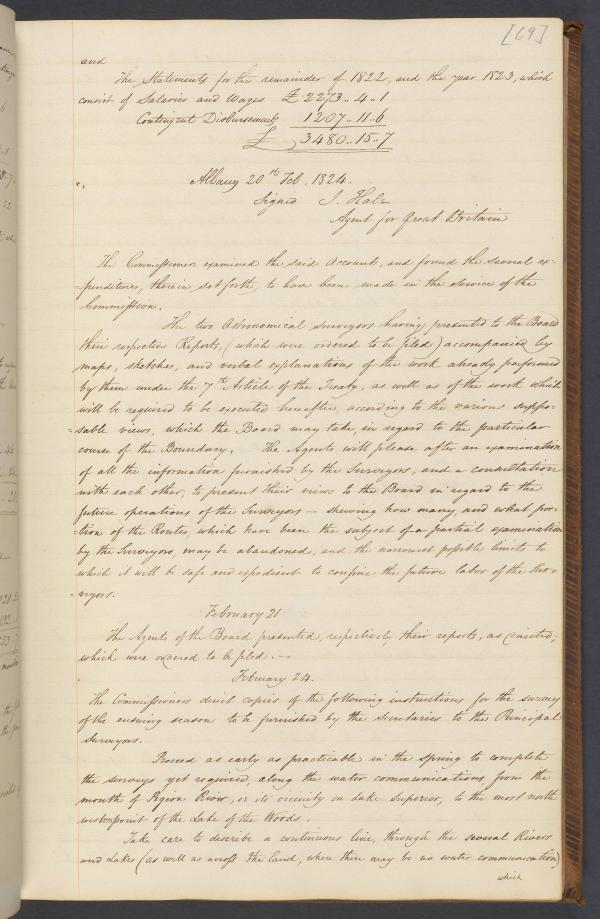 [69]
and
The Statements for the remainder of 1822, and the year 1823, which
consist of Salaries and Wages £ 2273..4..1
Contingent Disbursements 1207..11..6
£ 3480..15..7
Albany 20th Feb. 1824.
Signed J. Hale
Agent for Great Britain
The Commissioners examined the said Accounts, and found the several ex-
-penditures, therein set forth, to have been made in the service of the
Commission.
The two Astronomical Surveyors having presented to the Board
their respective Reports, (which were ordered to be filed) accompanied by
maps, sketches, and verbal explanations of the work already performed
by them under the 7th Article of the Treaty, as well as of the work which
will be required to be executed hereafter, according to the various suppo-
=sable views, which the Board may take, in regard to the particular
course of the Boundary. The Agents will please after an examination
of all the information furnished by the Surveyors, and a consultation
with each other, to present their views to the Board in regard to the
future operations of the Surveyors — shewing how many, and what por-
=tion of the Routes, which have been the subject of a partial examination
by the Surveyors, may be abandoned, and the narrowest possible limits to
which it will be safe and expedient to confine the future labor of the Sur-
=veyors.
February 21
The Agents of the Board presented, respectively their reports, as directed;
which were ordered to be filed. —
February 24.
The Commissioners direct copies of the following instructions for the survey
of the ensuing season to be furnished by the Secretaries to the Principal
Surveyors.
Proceed as early as practicable in the Spring to complete
the surveys yet required, along the water communications, from the
mouth of Pigion River, or its vicinity on Lake Superior, to the most north
western point of the Lake of the Woods.
Take care to describe a continuous line, through the several Rivers
and Lakes (as well as across the land, when there may be no water communication)
which